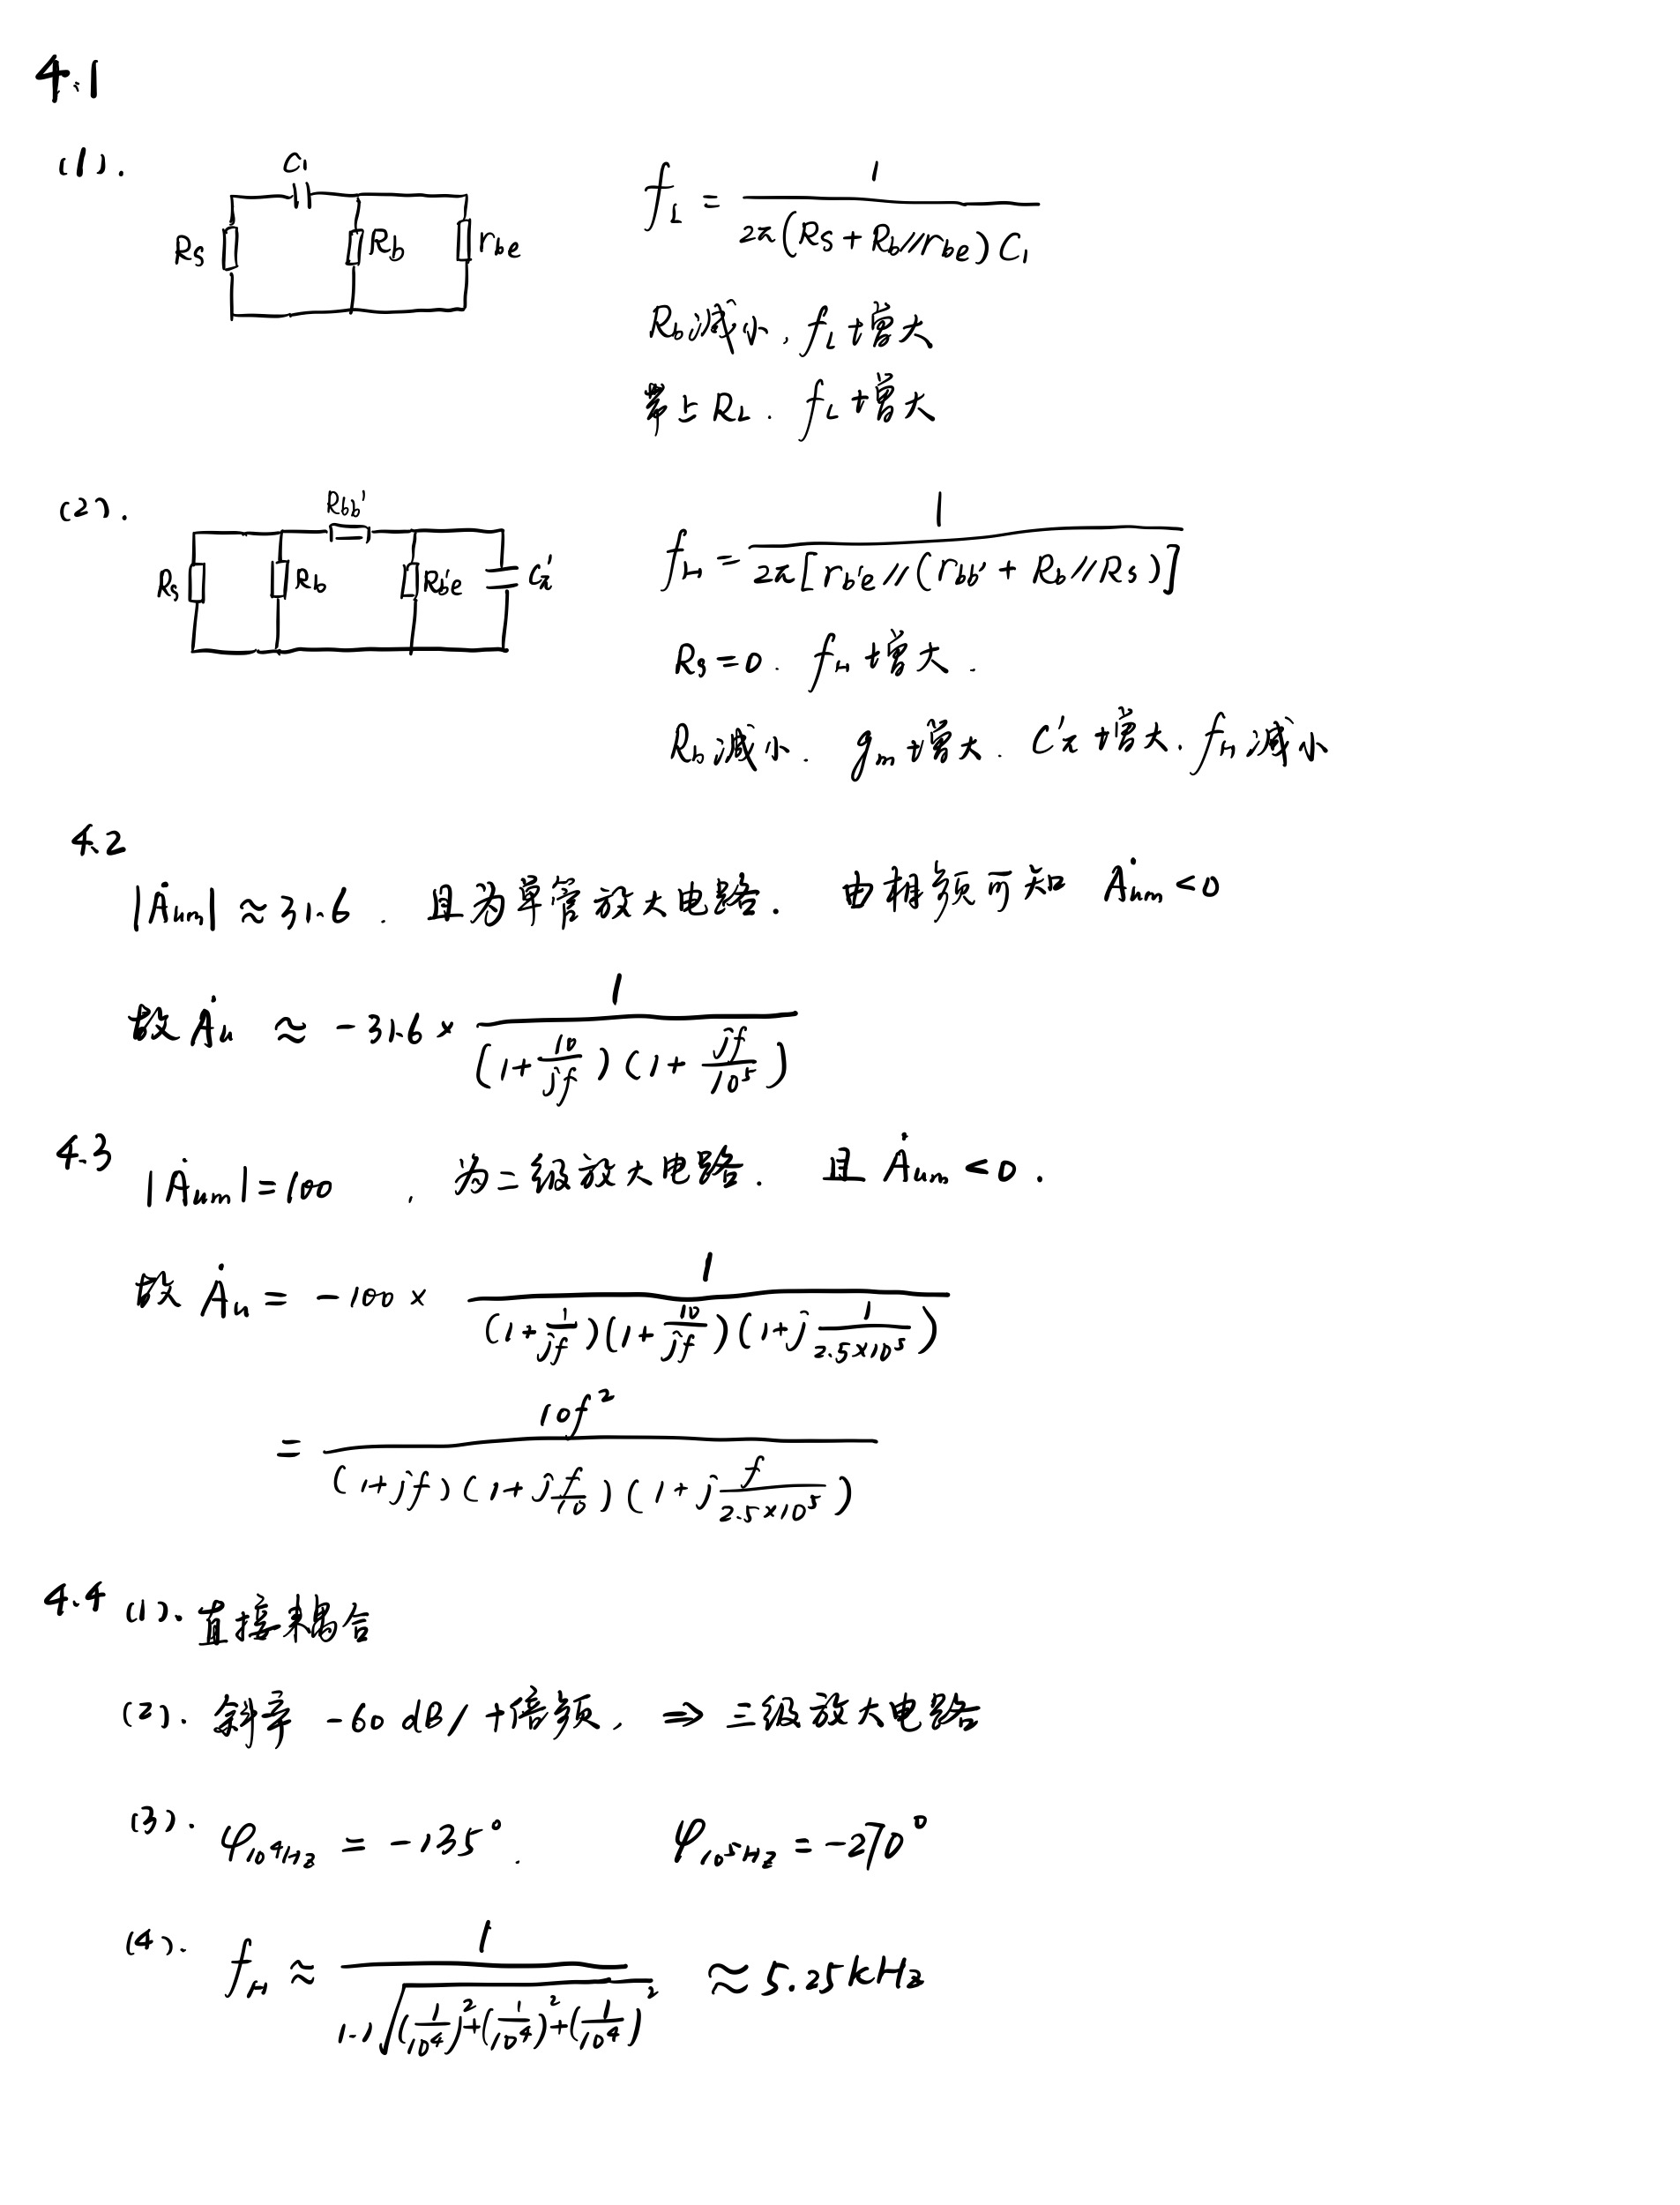 4.1
(1).
C₁
Rs
Rb
rbe
f_L = 1 / 2π(Rs + Rb // rbe) C₁
Rb减小, f_L 增大
带上 R_L. f_L 增大
(2).
Rbb'
Rs
Rb
Rb'e
C'π
f_H = 1 / 2π[rb'e // (rbb' + Rb // Rs)]
Rs = 0. f_H 增大.
Rb 减小. gm 增大. C'π 增大. f_H 减小
4.2
|Ȧum| ≈ 31.6. 且为单管放大电路. 由相频可知 Ȧum < 0
故 Ȧu ≈ -31.6 × 1 / (1 + 10/jf)(1 + jf/10⁵)
4.3
|Ȧum| = 100, 为二级放大电路. 且 Ȧum < 0.
故 Ȧu = -100 × 1 / (1 + 1/jf)(1 + 10/jf)(1 + j 1/2.5×10⁵)
= 10f² / (1 + jf)(1 + j f/10)(1 + j f/2.5×10⁵)
4.4 (1). 直接耦合
(2). 斜率 -60 dB/十倍频, ⇒ 三级放大电路
(3). φ₁₀⁴Hz = -135°. φ₁₀⁵Hz = -270°
(4). f_H ≈ 1 / 1.1√(1/10⁴)² + (1/10⁴)² + (1/10⁴)² ≈ 5.25kHz